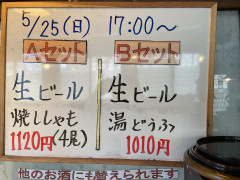 5/25(日) 17:00～
Aセット
生ビール
焼ししゃも
1120円(4尾)
Bセット
生ビール
湯どうふ
1010円
他のお酒にも替えられます